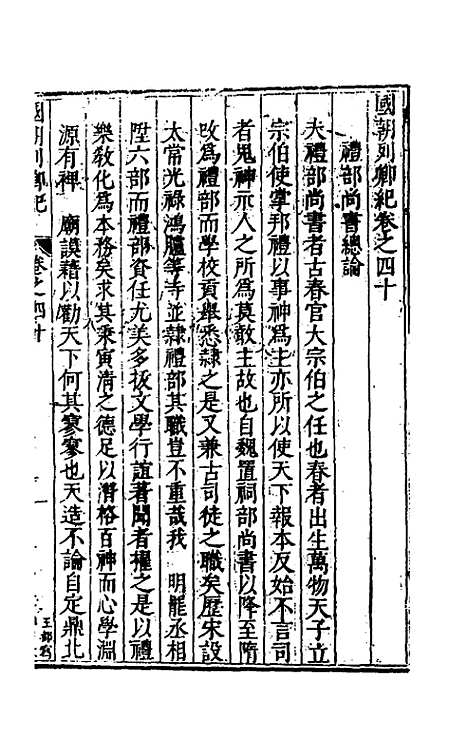 國朝列卿紀卷之四十
禮部尚書總論
夫禮部尚書者古春官大宗伯之任也春者出生萬物天子立
宗伯使掌邦禮以事神為主亦所以使天下報本反始不言司
者鬼神示人之所為莫敢主故也自魏置祠部尚書以降至隋
改為禮部而學校貢舉悉隸之是又兼古司徒之職矣歷宋設
太常光祿鴻臚等寺並隸禮部其職豈不重哉我　明罷丞相
陞六部而禮部資任尤美多拔文學行誼著聞者擢之是以禮
樂教化為本務矣求其秉寅清之德足以潛格百神而心學淵
源有裨　廟謨藉以勸天下何其寥寥也天造不論自定鼎北
國朝列卿紀
卷之四十
一